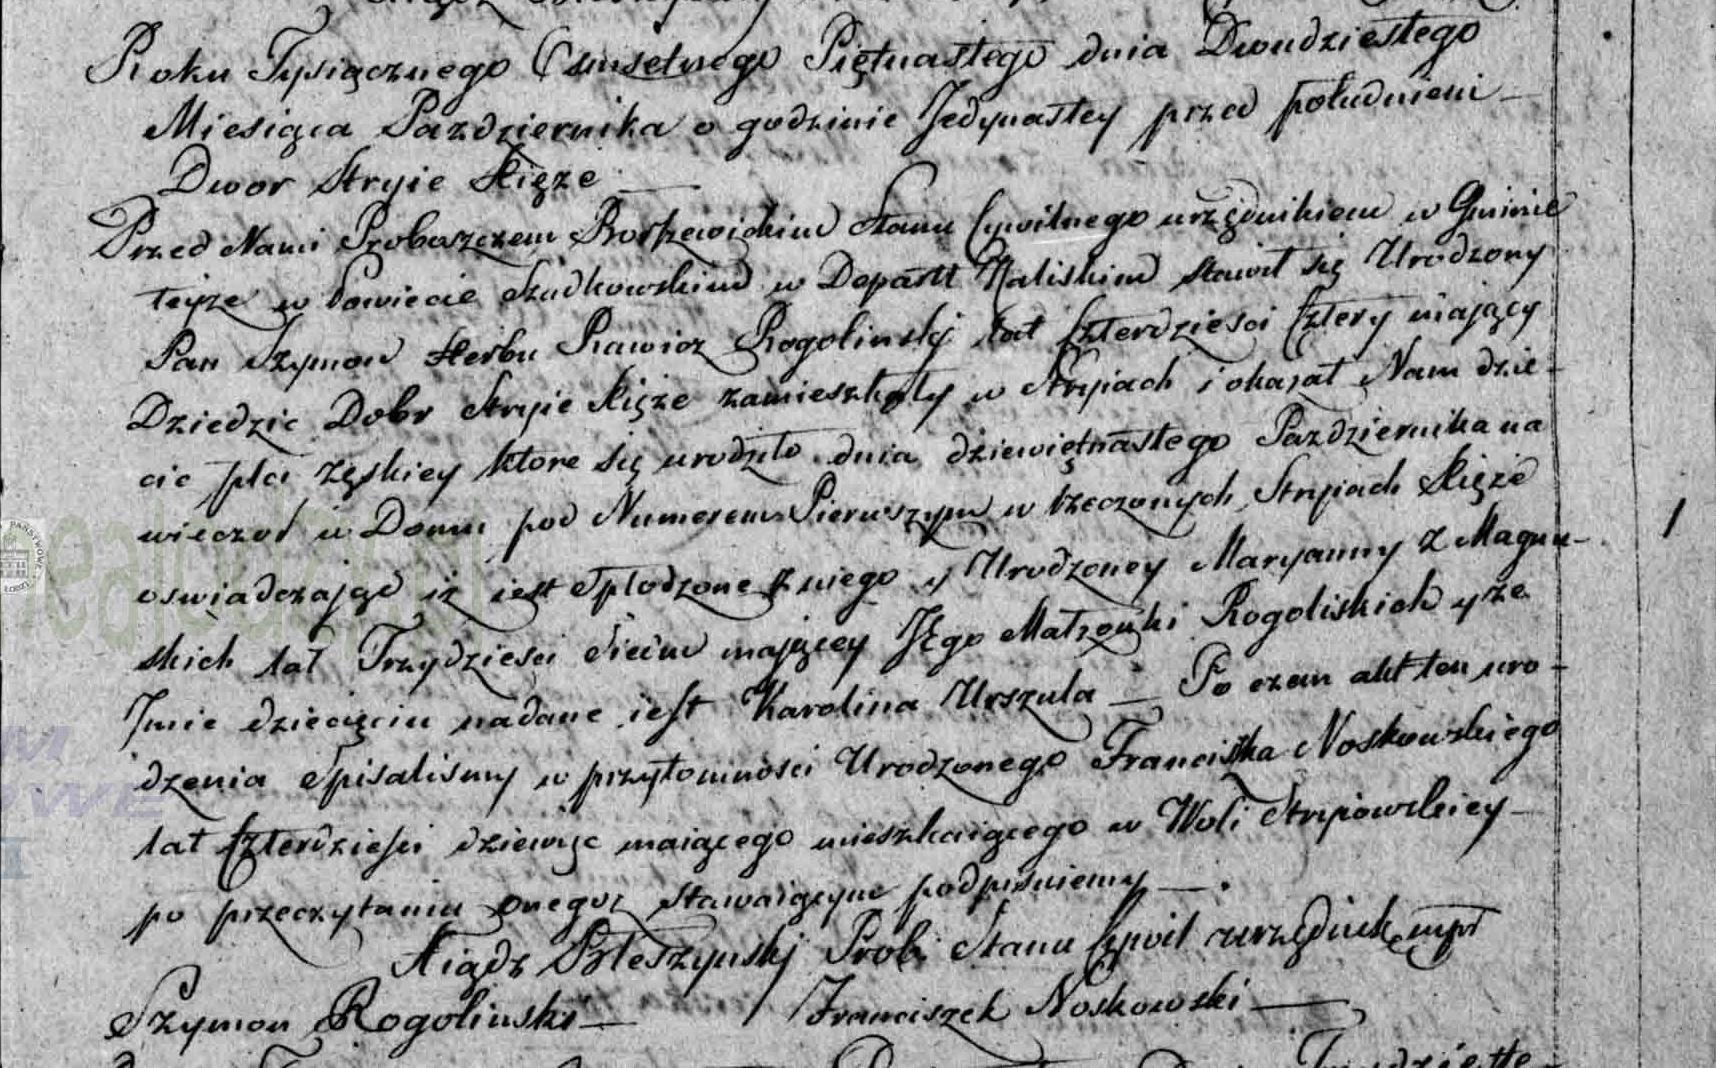 Roku Tysiącznego Osmsetnego Piętnastego dnia Dwudziestego
Miesiąca Pazdziernika o godzinie Jedynastey przed południem –
Dwor Stryie Xięze –
Przed Nami Proboszczem Stanu Cywilnego urzędnikiem w Gminie
teyze w Powiecie Szadkowskim w Departt Kaliskim stawił się Urodzony
Pan Szymon Herbu Rawicz Rogolinskj lat Czterdziesci Cztery maiący
Dziedzic Dobr Stryie Xięze zamieszkały w Stryiach i okazał Nam dzie-
cie płci Zęskiey ktore się urodziło dnia dziewiętnastego Pazdziernika na
wieczor w Domu pod Numerem Pierwszym w rzeczonych Stryiach Xięze
oswiadczaiąc iz iest Spłodzone z niego y Urodzoney Maryanny z Magnu-
skich lat Trzydziesci Siedm maiącey Jego Małzonki Rogoliskich y ze
Jmie dziecięciu nadane iest Karolina Urszula – Po czem akt ten uro-
dzenia Spisalismy w przytomnosci Urodzonego Franciszka Noskowskiego
lat Czterdziesci dziewięc maiącego mieszkaiącego w Woli Stryiowskiey –
po przeczytaniu onegoz stawaiącym podpisuiemy – .
Xiądz Bleszynskj Prob. Stanu Cywil urzędnik mpr
Szymon Rogolinski – Franciszek Noskowski –